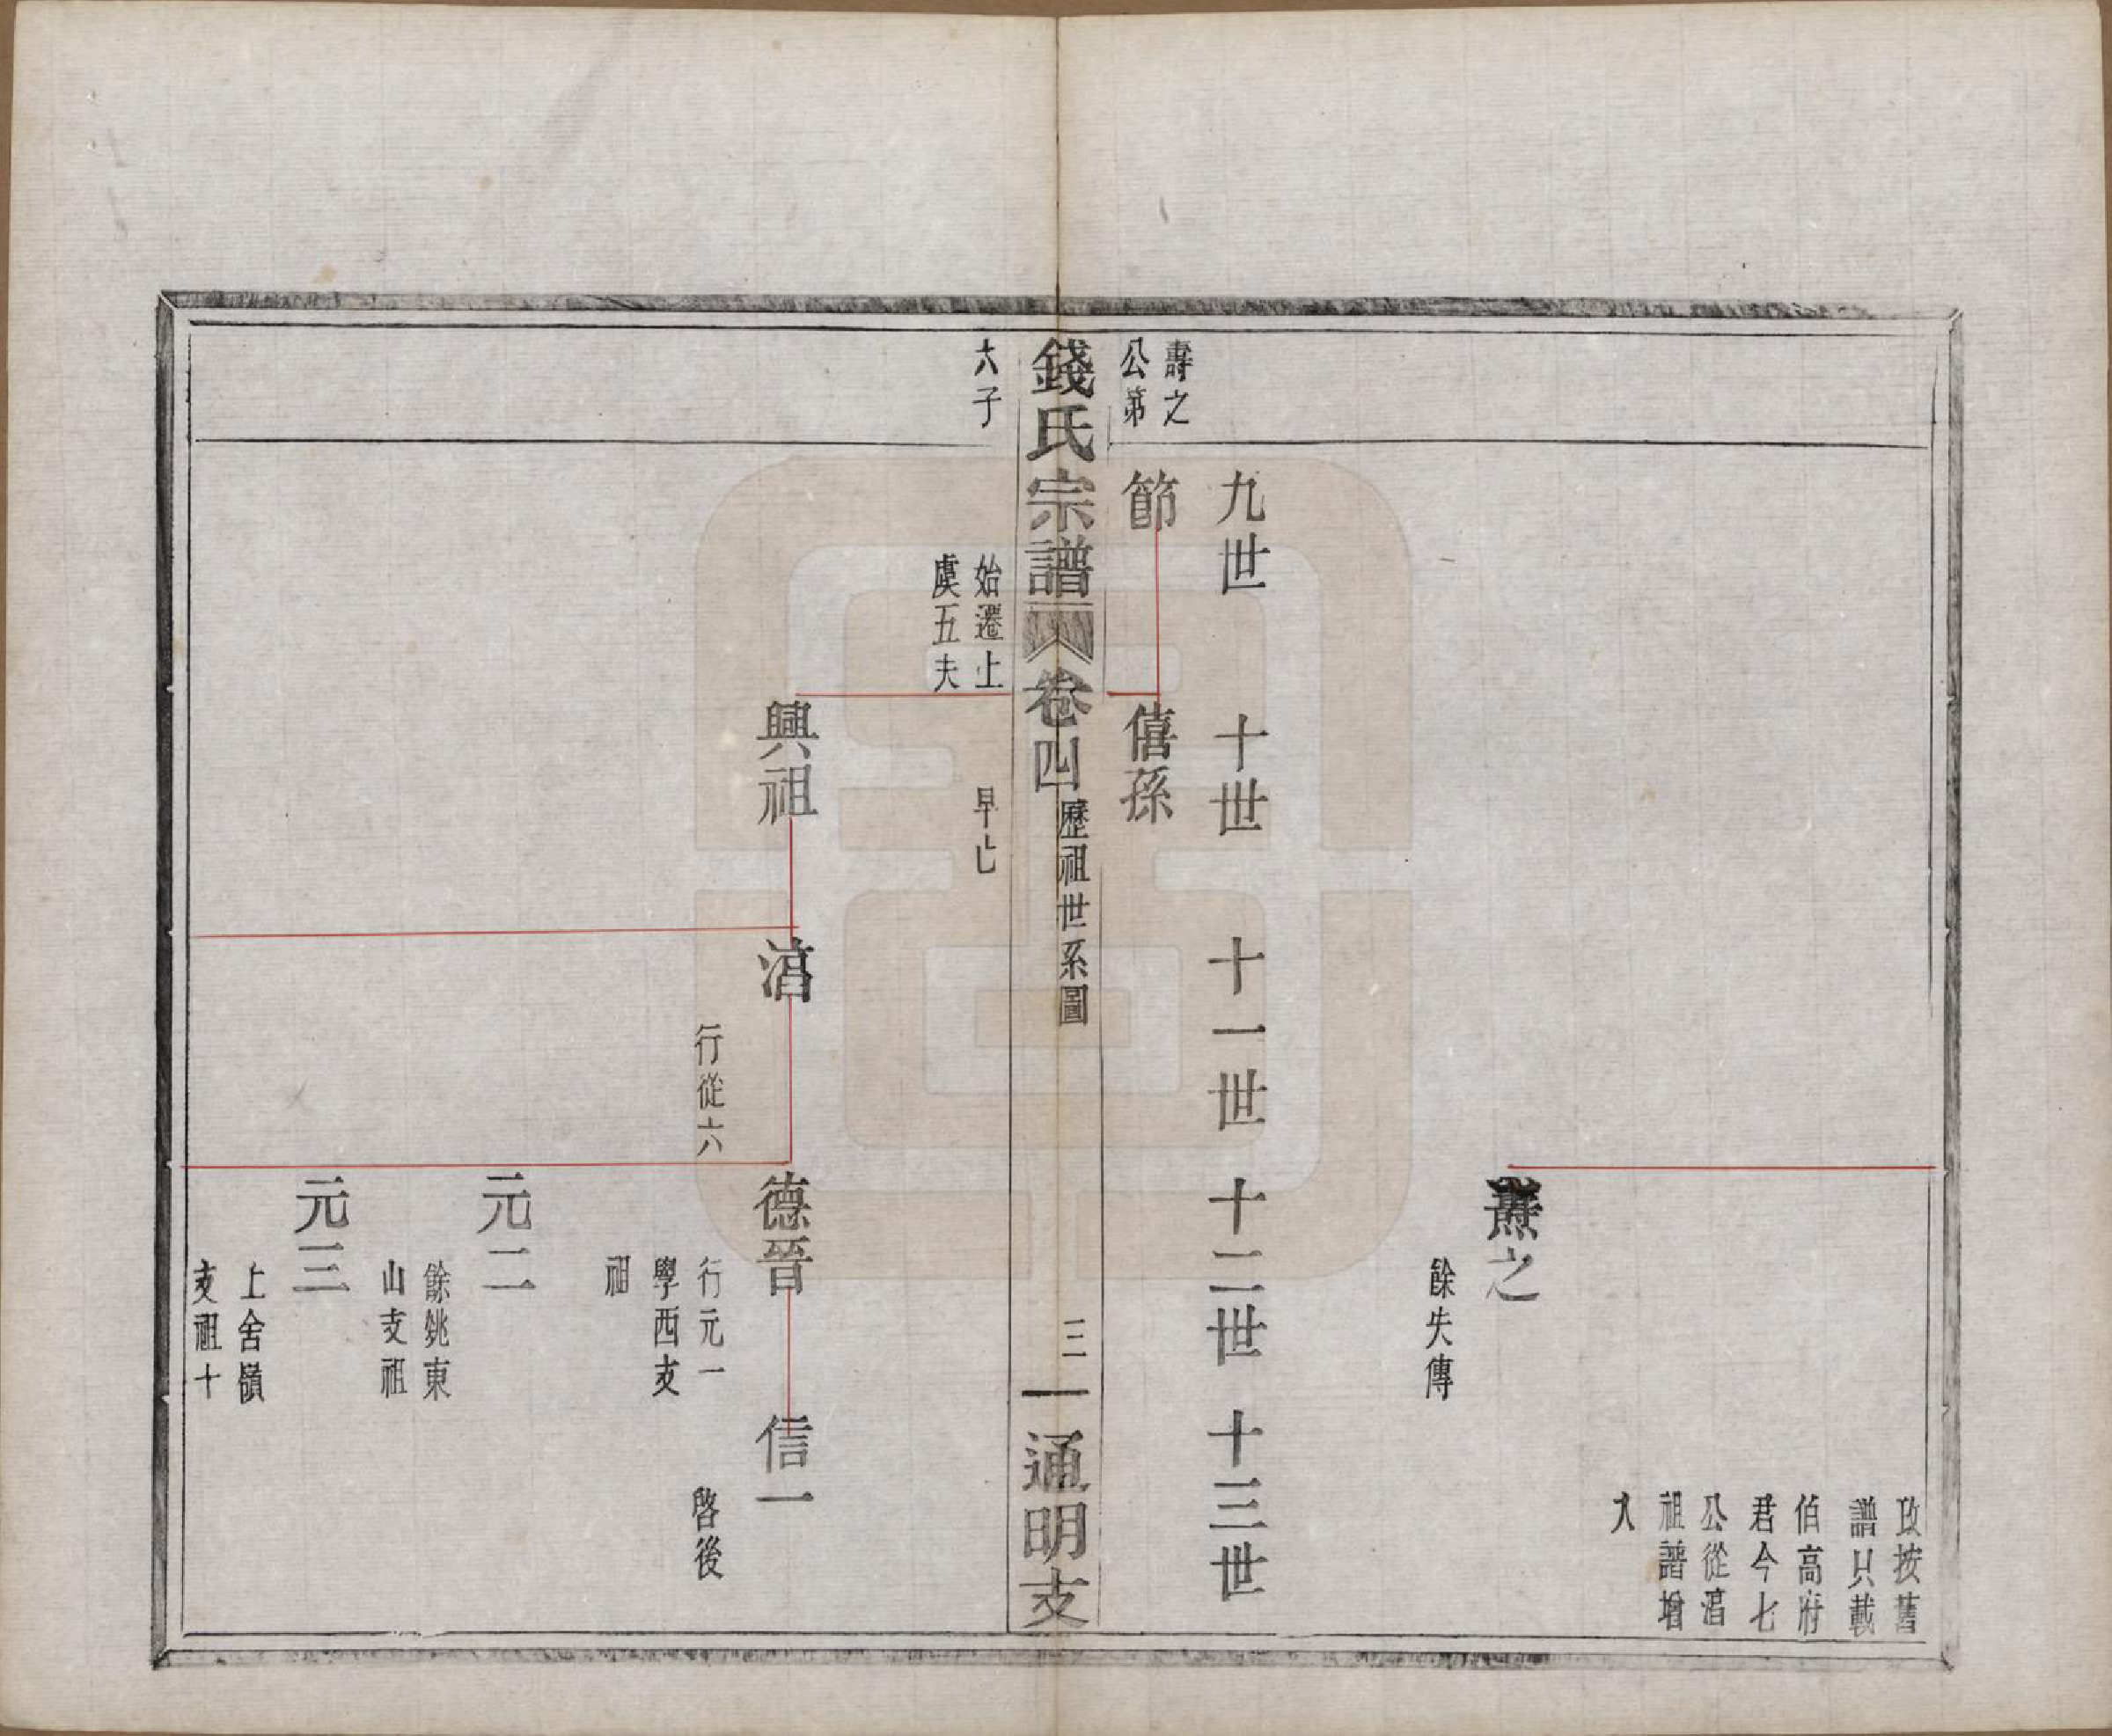 攷按舊
譜只載
伯高府
君今七
公從湻
祖譜增
入
燾之
餘失傳
九世
十世
十一世
十二世
十三世
壽之
公第
節
僖孫
錢氏宗譜
卷四
歷祖世系圖
三
通明支
六子
始遷上
虞五夫
早亡
興祖
湻
行從六
德晉
行元一
學西支
祖
信一
啓後
元二
餘姚東
山支祖
元三
上舍嶺
支祖十